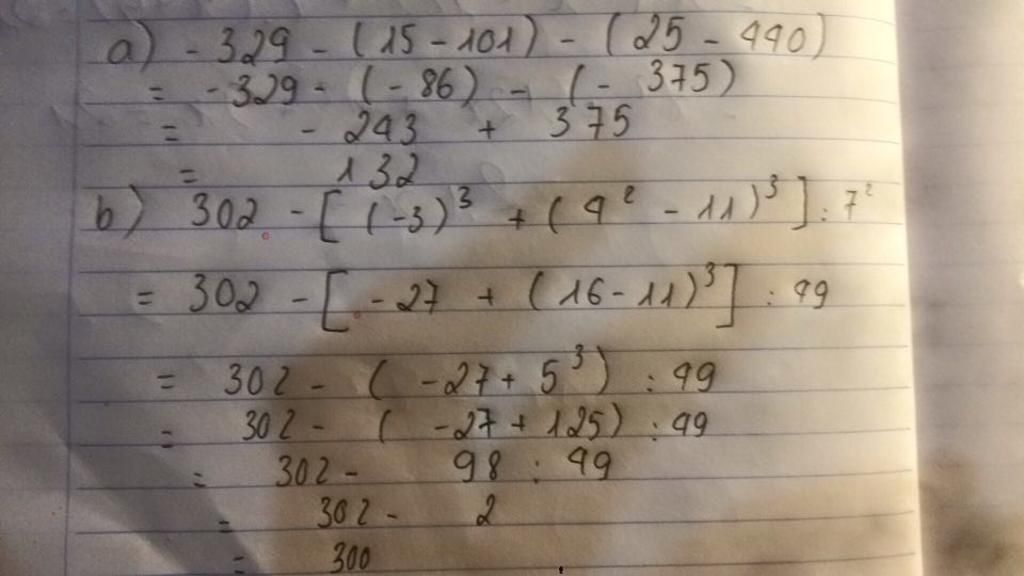 a) - 329 - (15 - 101) - (25 - 440)
= - 329 - (- 86) - (- 375)
= - 243 + 375
= 132
b) 302 - [(-3)³ + (4² - 11)³] : 7²
= 302 - [-27 + (16 - 11)³] : 49
= 302 - (-27 + 5³) : 49
= 302 - (-27 + 125) : 49
= 302 - 98 : 49
= 302 - 2
= 300